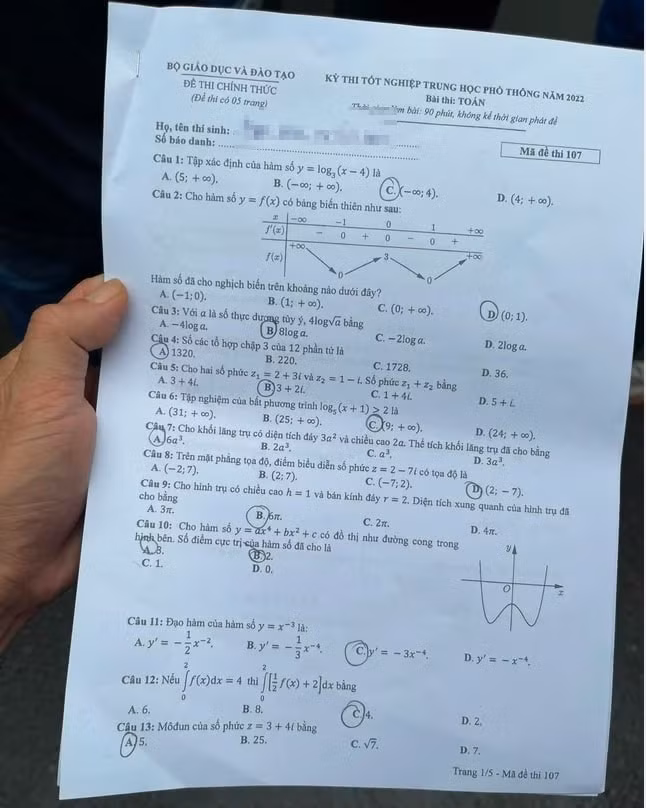 BỘ GIÁO DỤC VÀ ĐÀO TẠO
ĐỀ THI CHÍNH THỨC
(Đề thi có 05 trang)
KỲ THI TỐT NGHIỆP TRUNG HỌC PHỔ THÔNG NĂM 2022
Bài thi: TOÁN
làm bài: 90 phút, không kể thời gian phát đề
Họ, tên thí sinh:
Số báo danh:
Mã đề thi 107
Câu 1: Tập xác định của hàm số y = log₃(x − 4) là
A. (5; +∞). B. (−∞; +∞). C. (−∞; 4). D. (4; +∞).
Câu 2: Cho hàm số y = f(x) có bảng biến thiên như sau:
x −∞ −1 0 1 +∞
f'(x) − 0 + 0 − 0 +
+∞ 3 +∞
f(x)
0 0
Hàm số đã cho nghịch biến trên khoảng nào dưới đây?
A. (−1; 0). B. (1; +∞). C. (0; +∞). D. (0; 1).
Câu 3: Với a là số thực dương tùy ý, 4log√a bằng
A. −4log a. B. 8log a. C. −2log a. D. 2log a.
Câu 4: Số các tổ hợp chập 3 của 12 phần tử là
A. 1320. B. 220. C. 1728. D. 36.
Câu 5: Cho hai số phức z₁ = 2 + 3i và z₂ = 1 − i. Số phức z₁ + z₂ bằng
A. 3 + 4i. B. 3 + 2i. C. 1 + 4i. D. 5 + i.
Câu 6: Tập nghiệm của bất phương trình log₅(x + 1) > 2 là
A. (31; +∞). B. (25; +∞). C. (9; +∞). D. (24; +∞).
Câu 7: Cho khối lăng trụ có diện tích đáy 3a² và chiều cao 2a. Thể tích khối lăng trụ đã cho bằng
A. 6a³. B. 2a³. C. a³. D. 3a³.
Câu 8: Trên mặt phẳng tọa độ, điểm biểu diễn số phức z = 2 − 7i có tọa độ là
A. (−2; 7). B. (2; 7). C. (−7; 2). D. (2; −7).
Câu 9: Cho hình trụ có chiều cao h = 1 và bán kính đáy r = 2. Diện tích xung quanh của hình trụ đã
cho bằng
A. 3π. B. 6π. C. 2π. D. 4π.
Câu 10: Cho hàm số y = ax⁴ + bx² + c có đồ thị như đường cong trong
hình bên. Số điểm cực trị của hàm số đã cho là
A. 3. B. 2.
C. 1. D. 0.
y
O x
Câu 11: Đạo hàm của hàm số y = x⁻³ là:
A. y' = −1/2 x⁻². B. y' = −1/3 x⁻⁴. C. y' = −3x⁻⁴. D. y' = −x⁻⁴.
Câu 12: Nếu ∫₀² f(x)dx = 4 thì ∫₀² [1/2 f(x) + 2]dx bằng
A. 6. B. 8. C. 4. D. 2.
Câu 13: Môđun của số phức z = 3 + 4i bằng
A. 5. B. 25. C. √7. D. 7.
Trang 1/5 - Mã đề thi 107